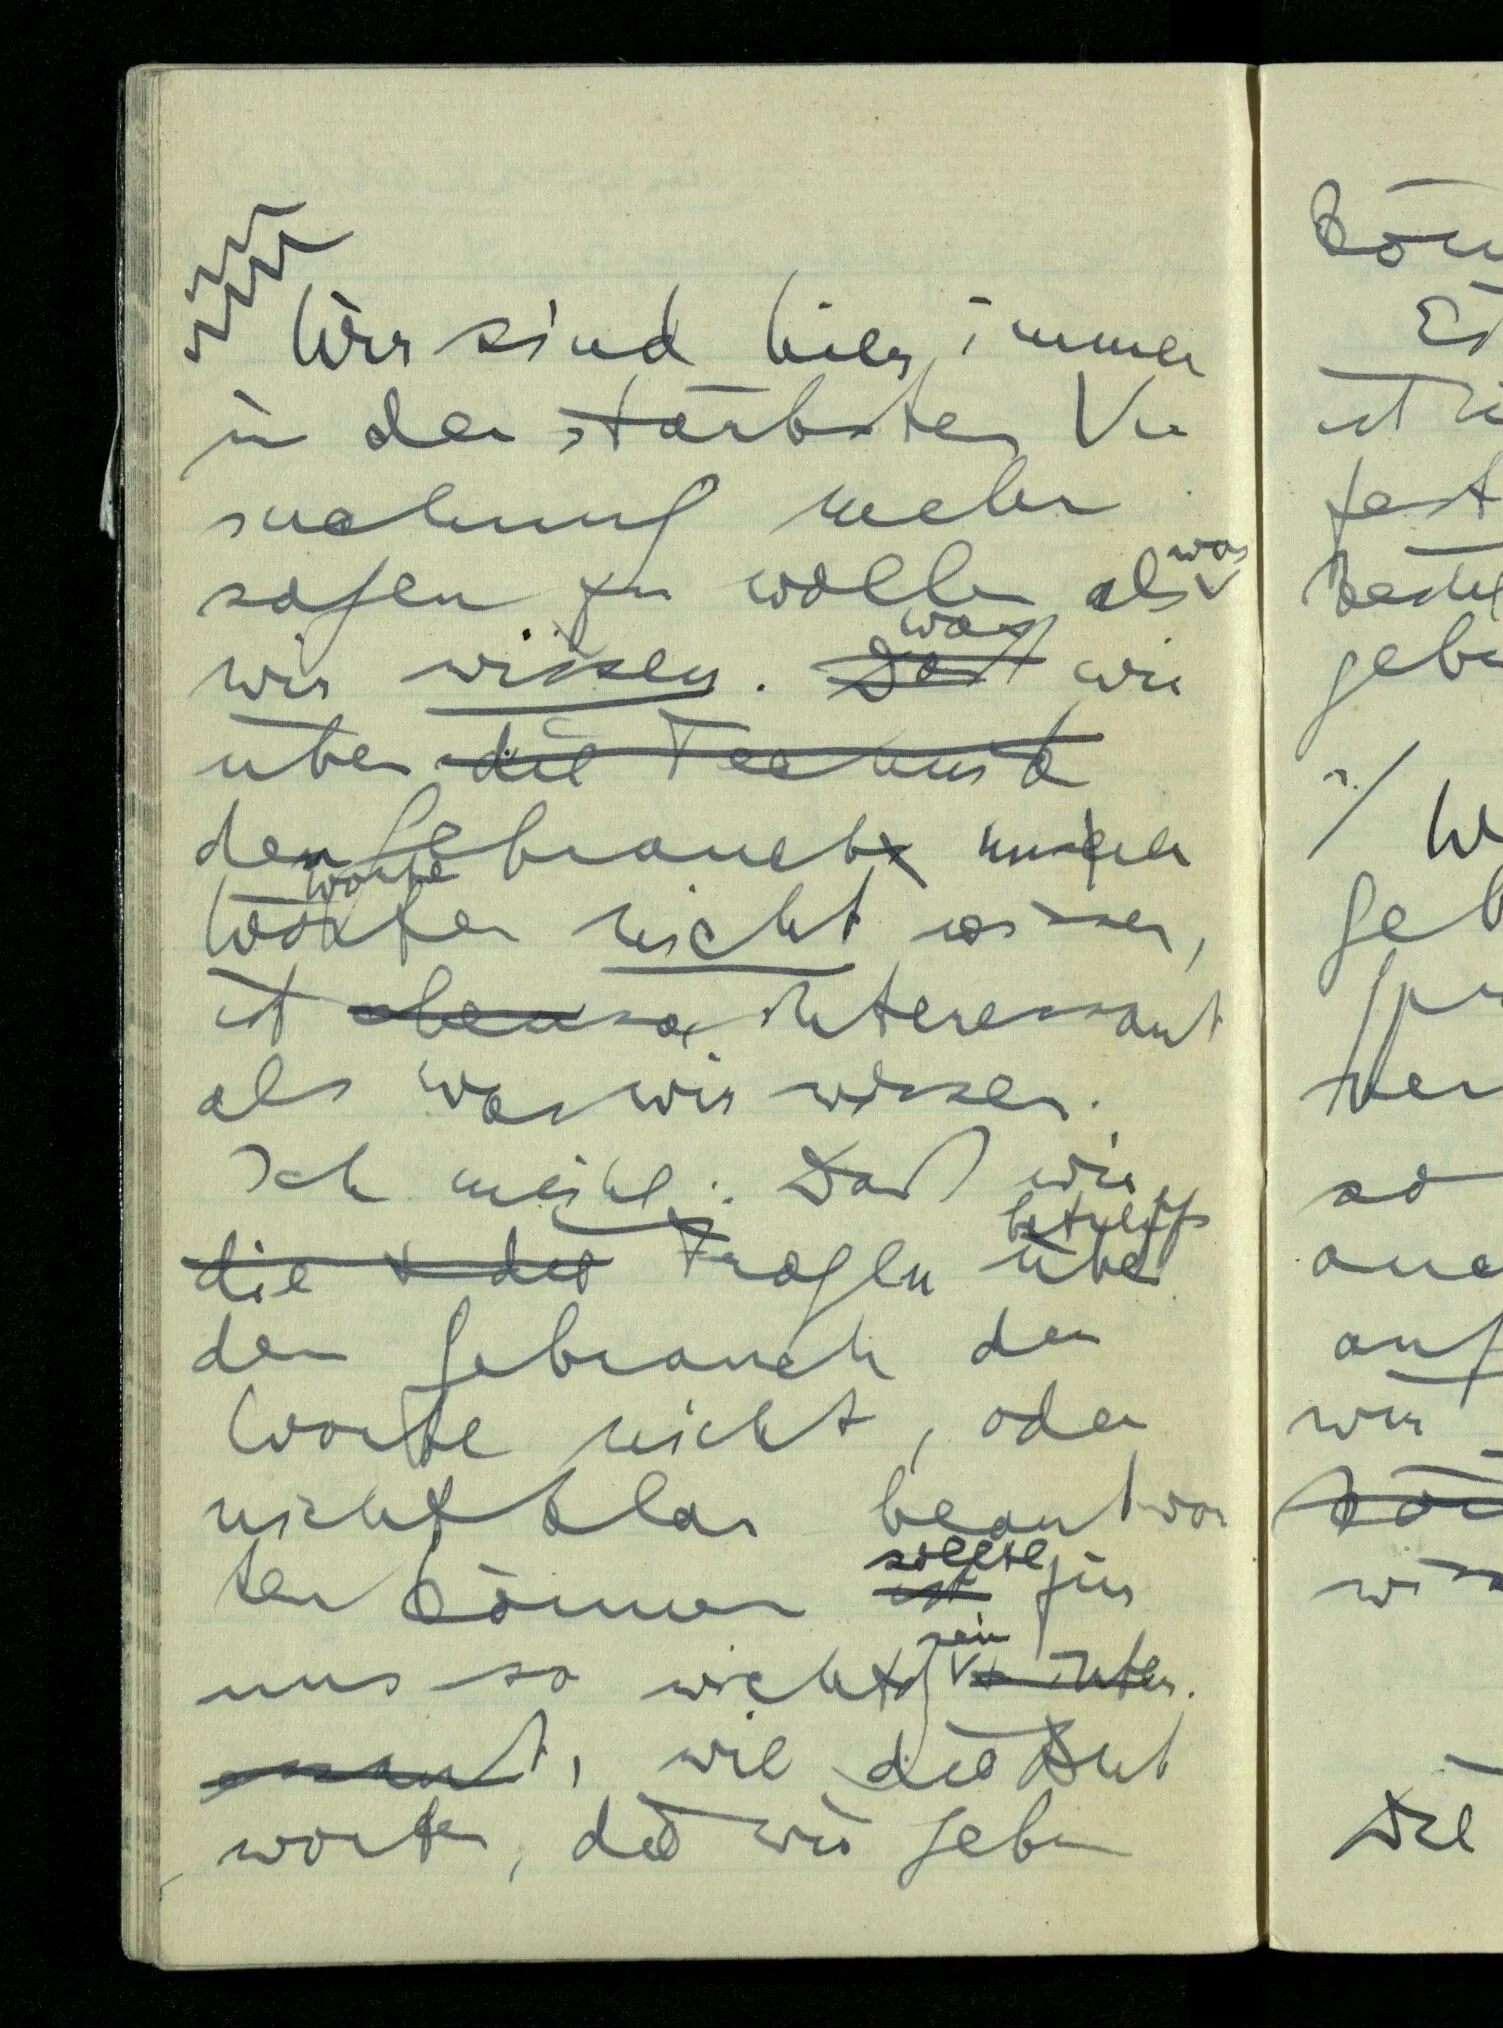 Wir sind hier immer
in der stärksten Ver
suchung mehr
sagen zu wollen als was
wir wissen. Daß was wir
über die Technik
den Gebrauch unserer
Wörter Worte nicht wissen,
ist ebenso interessant
als was wir wissen.
Ich meine: Daß wir
die Fragen über betreffs
den Gebrauch der
Worte nicht, oder
nicht klar beantwor
ten können ist sollte für
uns so wichtig sein inter
essant, wie die Ant
worten, die wir geben
Es
ist
fest
gebe
so
auf
wir
Die